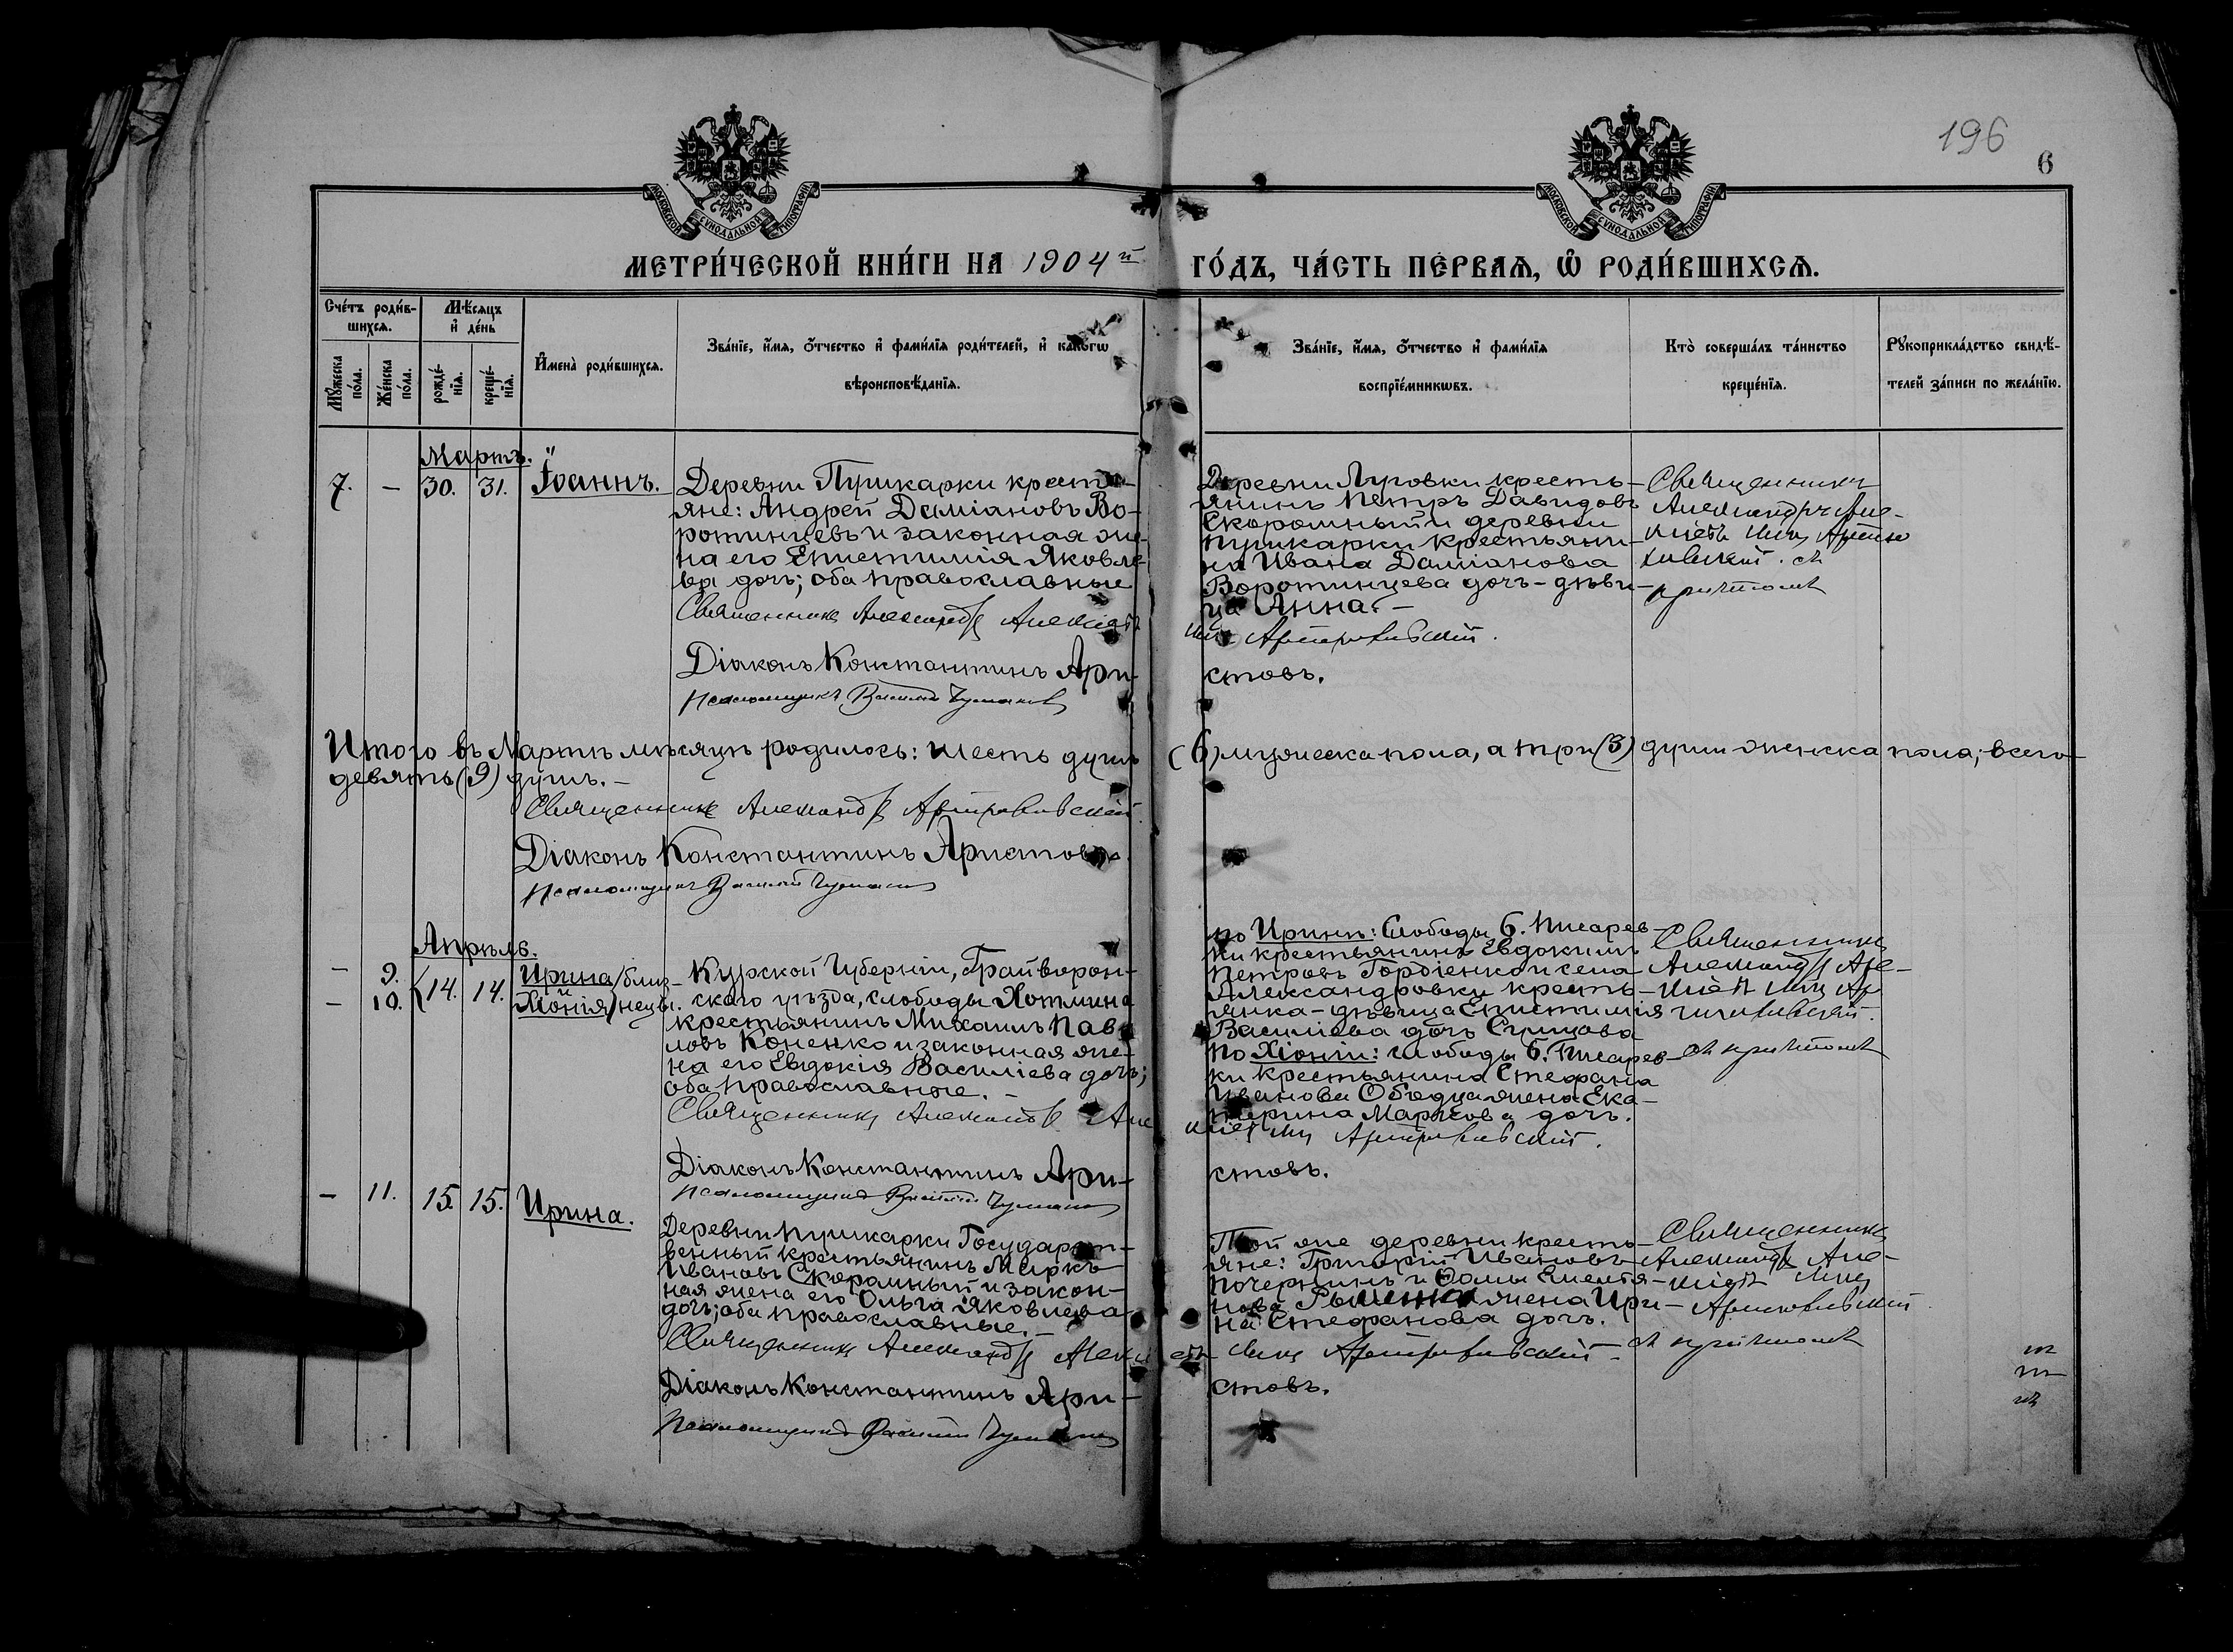 196
6
МОСКОВСКОЙ СѴНОДАЛЬНОЙ ТИПОГРАФІИ
МОСКОВСКОЙ СѴНОДАЛЬНОЙ ТИПОГРАФІИ
МЕТРИ́ЧЕСКОЙ КНИ́ГИ НА 1904й ГО́ДЪ, ЧА́СТЬ ПЕ́РВАѦ, Ѡ РОДИ́ВШИХСѦ.
Сче́тъ роди́в-
шихсѧ.
Мꙋ́жеска по́ла.
Же́нска по́ла.
Мѣ́сѧцъ и҆ де́нь
рожде́-
нїѧ.
креще́-
нїѧ.
И҆мена̀ роди́вшихсѧ.
Зва́нїе, и҆́мѧ, ѻ҆́тчество и҆ фами́лїѧ роди́телей, и҆ како́гѡ
вѣроисповѣ́данїѧ.
Зва́нїе, и҆́мѧ, ѻ҆́тчество и҆ фами́лїѧ
воспрїе́мникѡвъ.
Кто̀ соверша́лъ та́инство
креще́нїѧ.
Рꙋкоприкла́дство свидѣ́-
телей за́писи по жела́нїю.
Мартъ.
7. — 30. 31. Іоаннъ.
Деревни Пушкарки кресть-
яне: Андрей Даміановъ Во-
ротинцевъ и законная же-
на его Епистимія Яковле-
ва дочь; оба православные
Священникъ Александръ Алексіевъ
Діаконъ Константинъ Ари-
Псаломщикъ Василій Чумаковъ
Деревни Луговки кресть-
янинъ Петръ Давидовъ
Скоромный и деревни
Пушкарки крестьяни-
на Ивана Даміанова
Воротинцева дочь-дѣви-
ца Анна.—
стовъ.
Священникъ
Александръ Але-
съ
причтомъ
Итого въ Мартѣ мѣсяцѣ родилось: шесть душъ (6) мужеска пола, а три (3) души женска пола; всего
девять (9) душъ.—
Священникъ Александръ
Діаконъ Константинъ Аристовъ.
Псаломщикъ Василій Чумаковъ
Апрѣль.
— 9. Ирина близ-
— 10. 14. 14. Хіонія нецы.
Курской Губерніи, Грайворон-
скаго уѣзда, слободы Хотмина
крестьянинъ Михаилъ Пав-
ловъ Коненко и законная же-
на его Евдокія Василіева дочь;
оба православные.—
Священникъ Александръ Але
Діаконъ Константинъ Ари-
Псаломщикъ Василій Чумаковъ
по Иринѣ: Слободы Б. Писарев-
ки крестьянинъ Евдокимъ
Петровъ Гордіенко и села
Александровки кресть-
янка-дѣвица Епистимія
Василіева дочь
по Хіоніи: слободы Б. Писарев-
ки крестьянина Стефана
Иванова жена Ека-
терина Маркова дочь.
стовъ.
Священникъ
Александръ Але-
съ причтомъ
— 11. 15. 15. Ирина.
Деревни Пушкарки Государст-
венный крестьянинъ Маркъ
Ивановъ Скоромный и закон-
ная жена его Ольга Яковлева
дочь; оба православные.—
Священникъ Александръ Алексі
Діаконъ Константинъ Ари-
Псаломщикъ Василій Чумаковъ
Той же деревни кресть-
яне: Григорій Ивановъ
Почернинъ и Ѳомы Емелія-
нова жена Ири-
на Стефанова дочь.
стовъ.
Священникъ
Александръ Але-
съ причтомъ